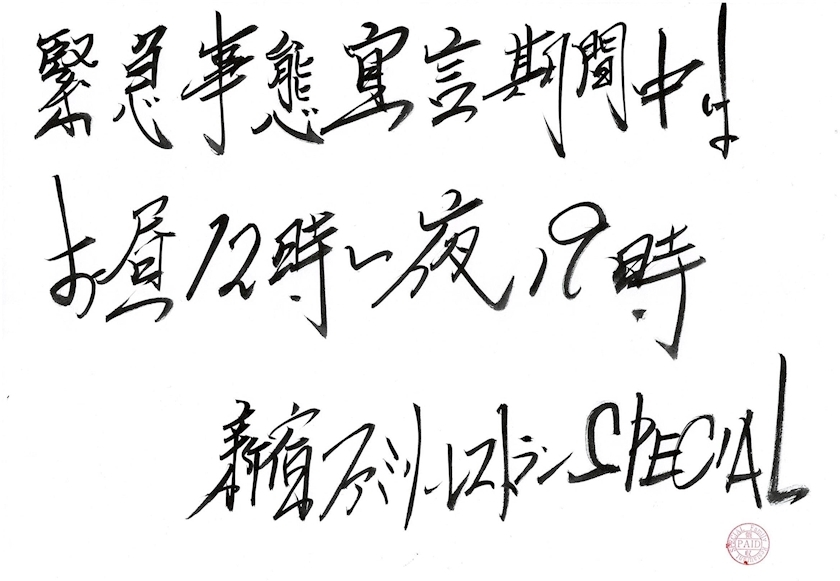 緊急事態宣言期間中は
お昼12時〜夜19時
新宿ファミリーレストランSPECIAL
PAID